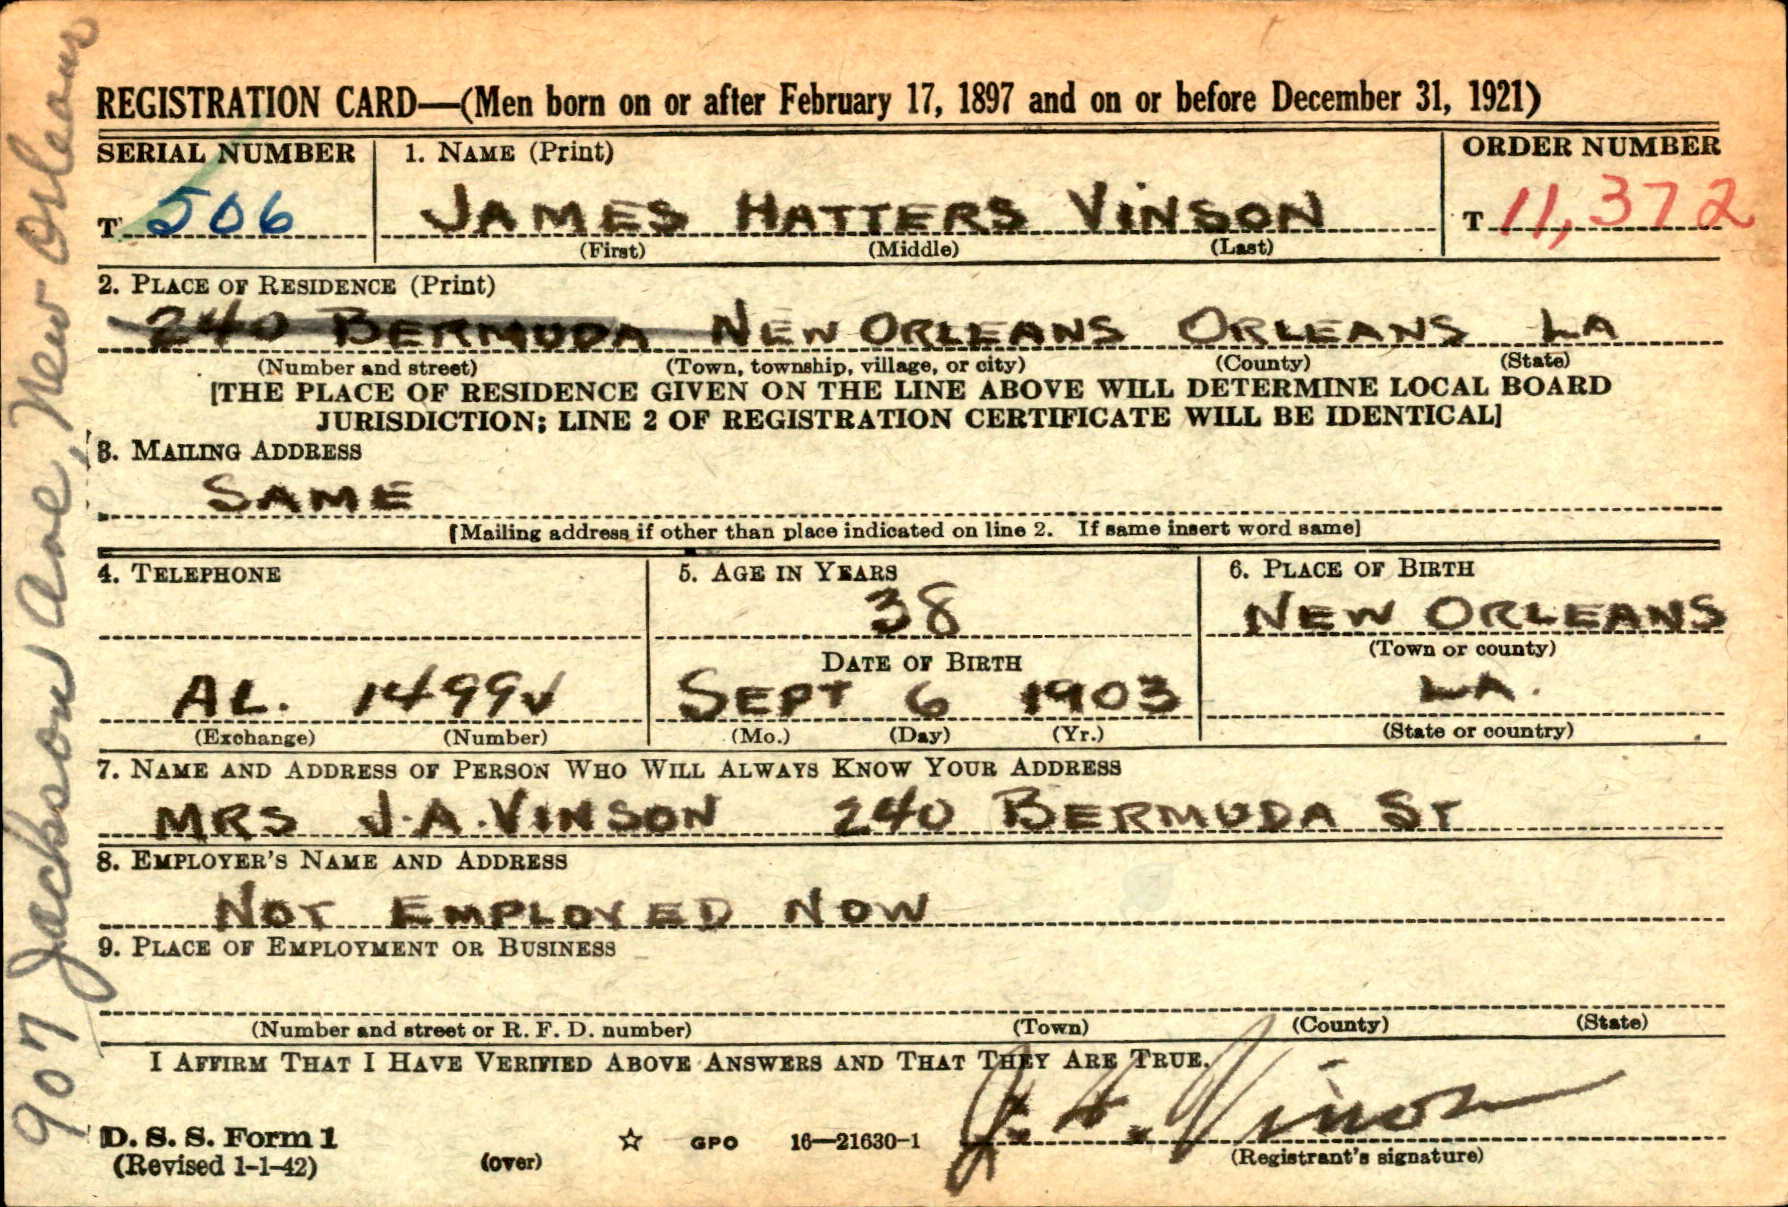 REGISTRATION CARD—(Men born on or after February 17, 1897 and on or before December 31, 1921)
SERIAL NUMBER
1. NAME (Print)
ORDER NUMBER
T 506
JAMES HATTERS VINSON
T 11,372
(First) (Middle) (Last)
2. PLACE OF RESIDENCE (Print)
240 BERMUDA NEW ORLEANS ORLEANS LA
(Number and street) (Town, township, village, or city) (County) (State)
[THE PLACE OF RESIDENCE GIVEN ON THE LINE ABOVE WILL DETERMINE LOCAL BOARD
JURISDICTION; LINE 2 OF REGISTRATION CERTIFICATE WILL BE IDENTICAL]
3. MAILING ADDRESS
SAME
[Mailing address if other than place indicated on line 2. If same insert word same]
4. TELEPHONE
5. AGE IN YEARS
6. PLACE OF BIRTH
38
NEW ORLEANS
(Town or county)
DATE OF BIRTH
AL. 1499J
SEPT 6 1903
LA.
(Exchange) (Number)
(Mo.) (Day) (Yr.)
(State or country)
7. NAME AND ADDRESS OF PERSON WHO WILL ALWAYS KNOW YOUR ADDRESS
MRS J.A.VINSON 240 BERMUDA ST
8. EMPLOYER'S NAME AND ADDRESS
NOT EMPLOYED NOW
9. PLACE OF EMPLOYMENT OR BUSINESS
(Number and street or R. F. D. number) (Town) (County) (State)
I AFFIRM THAT I HAVE VERIFIED ABOVE ANSWERS AND THAT THEY ARE TRUE.
J. H. Vinson
D. S. S. Form 1
(Revised 1-1-42)
(over)
☆ GPO 16—21630-1
(Registrant's signature)
907 Jackson Ave, New Orleans